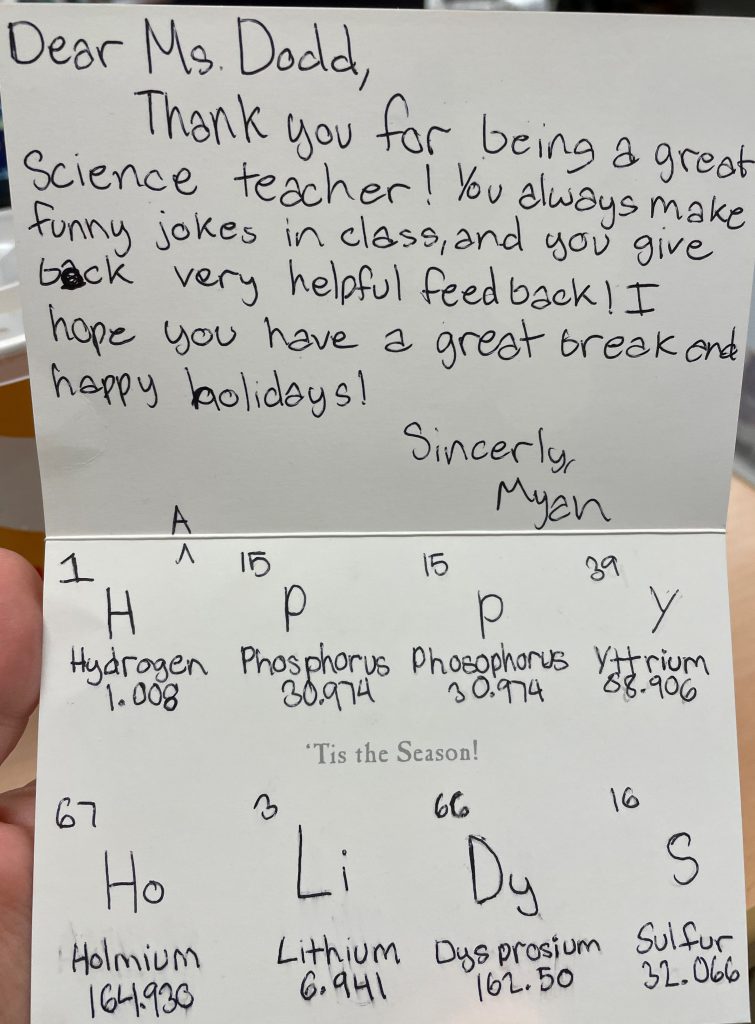 Dear Ms. Dodd,
Thank you for being a great
Science teacher! You always make
funny jokes in class, and you give
back very helpful feedback! I
hope you have a great break and
happy holidays!
Sincerely,
Myan
A
^
1 15 15 39
H P P Y
Hydrogen Phosphorus Phosophorus Yttrium
1.008 30.974 30.974 88.906
'Tis the Season!
67 3 66 16
Ho Li Dy S
Holmium Lithium Dysprosium Sulfur
164.930 6.941 162.50 32.066